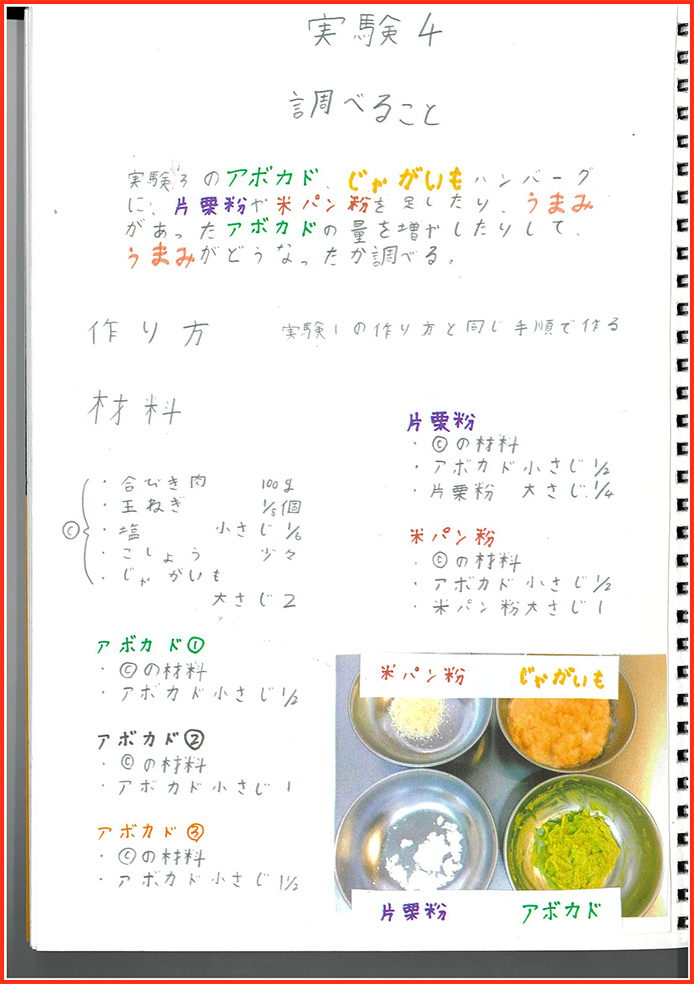 実験4
調べること
実験3のアボカド、じゃがいもハンバーグ
に、片栗粉や米パン粉を足したり、うまみ
があったアボカドの量を増やしたりして、
うまみがどうなったか調べる。
作り方 実験1の作り方と同じ手順で作る
材料
ⓒ
・合びき肉 100g
・玉ねぎ 1/8個
・塩 小さじ1/6
・こしょう 少々
・じゃがいも
大さじ2
アボカド①
・ⓒの材料
・アボカド小さじ1/2
アボカド②
・ⓒの材料
・アボカド小さじ1
アボカド③
・ⓒの材料
・アボカド小さじ1 1/2
片栗粉
・ⓒの材料
・アボカド小さじ1/2
・片栗粉 大さじ1/4
米パン粉
・ⓒの材料
・アボカド小さじ1/2
・米パン粉大さじ1
米パン粉 じゃがいも
片栗粉 アボカド